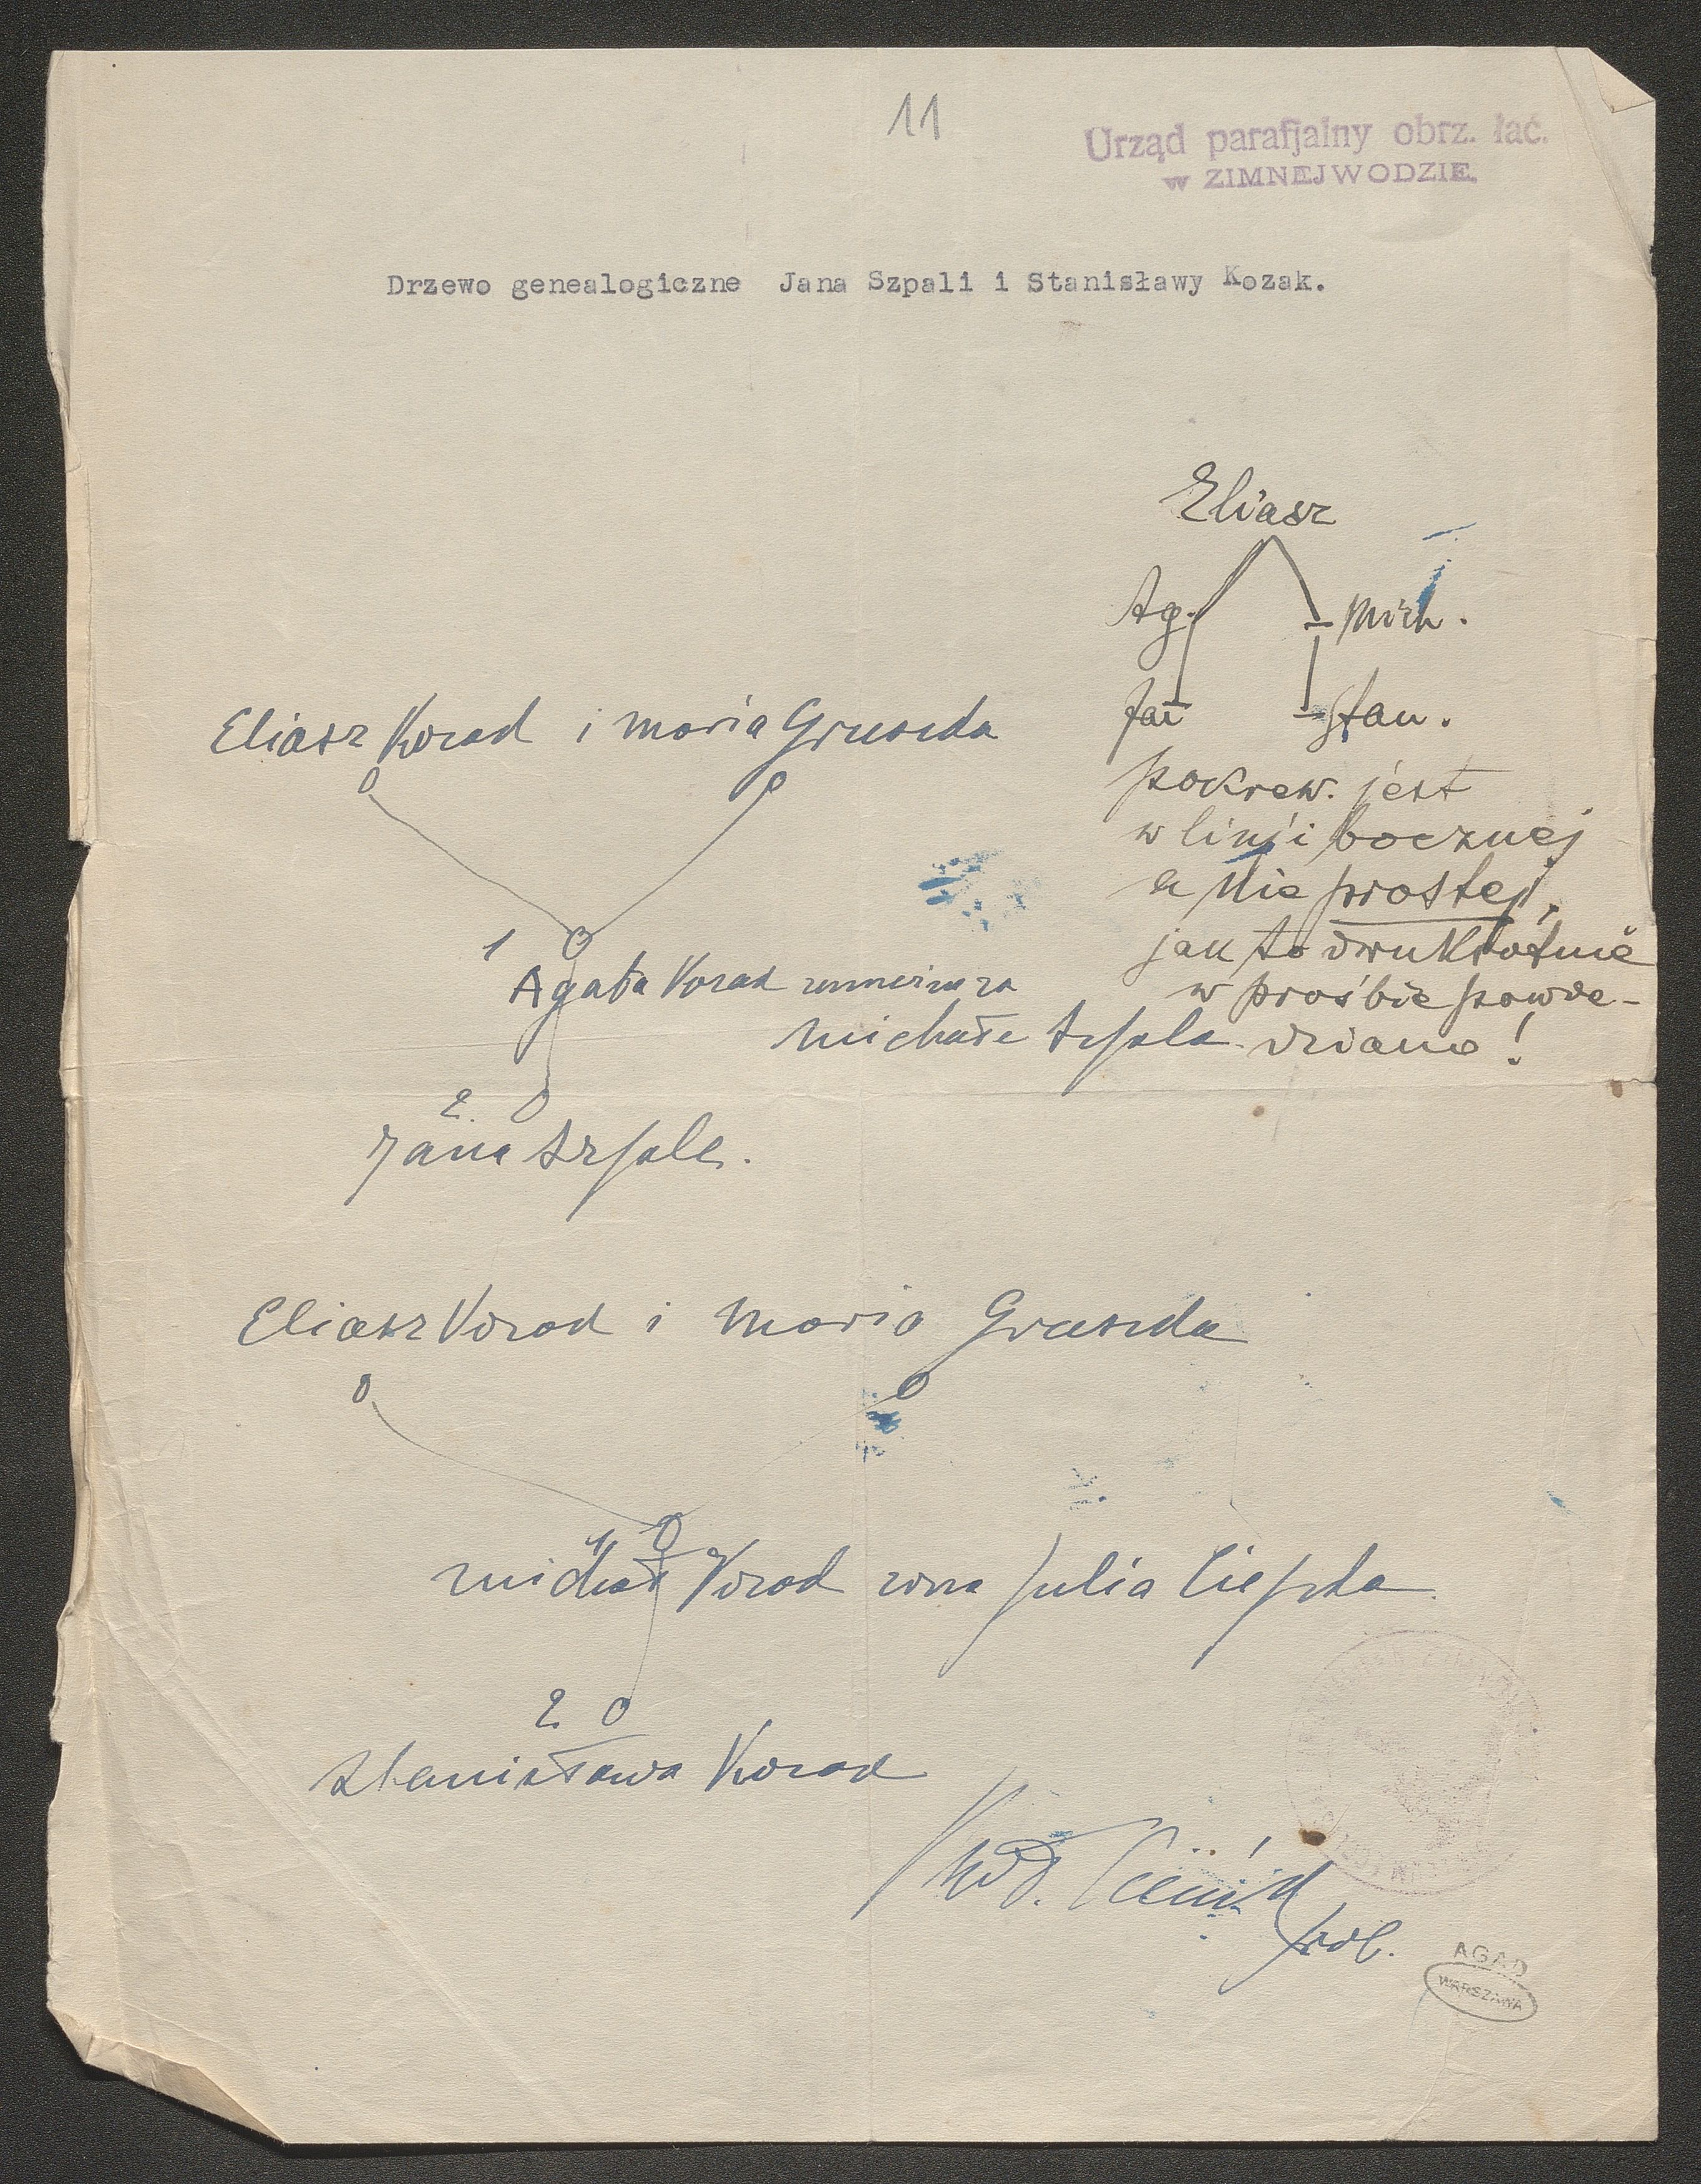 11
Urząd parafjalny obrz. łać.
w ZIMNEJWODZIE.
Drzewo genealogiczne Jana Szpali i Stanisławy Kozak.
Eliasz
Ag. Mich.
Jan Stan.
pokrew. jest
w linji bocznej
a nie prostej,
jak to dwukrotnie
w prośbie powie-
dziano!
Eliasz Kozak i Maria Gruszda
1
Agata Kozak
Michała Szpala
2.
Jana Szpala.
Eliasz Kozak i Maria Gruszda
1
Michał Kozak żona Julia Ciepła
2.
Stanisława Kozak
prob.
AGAD
WARSZAWA